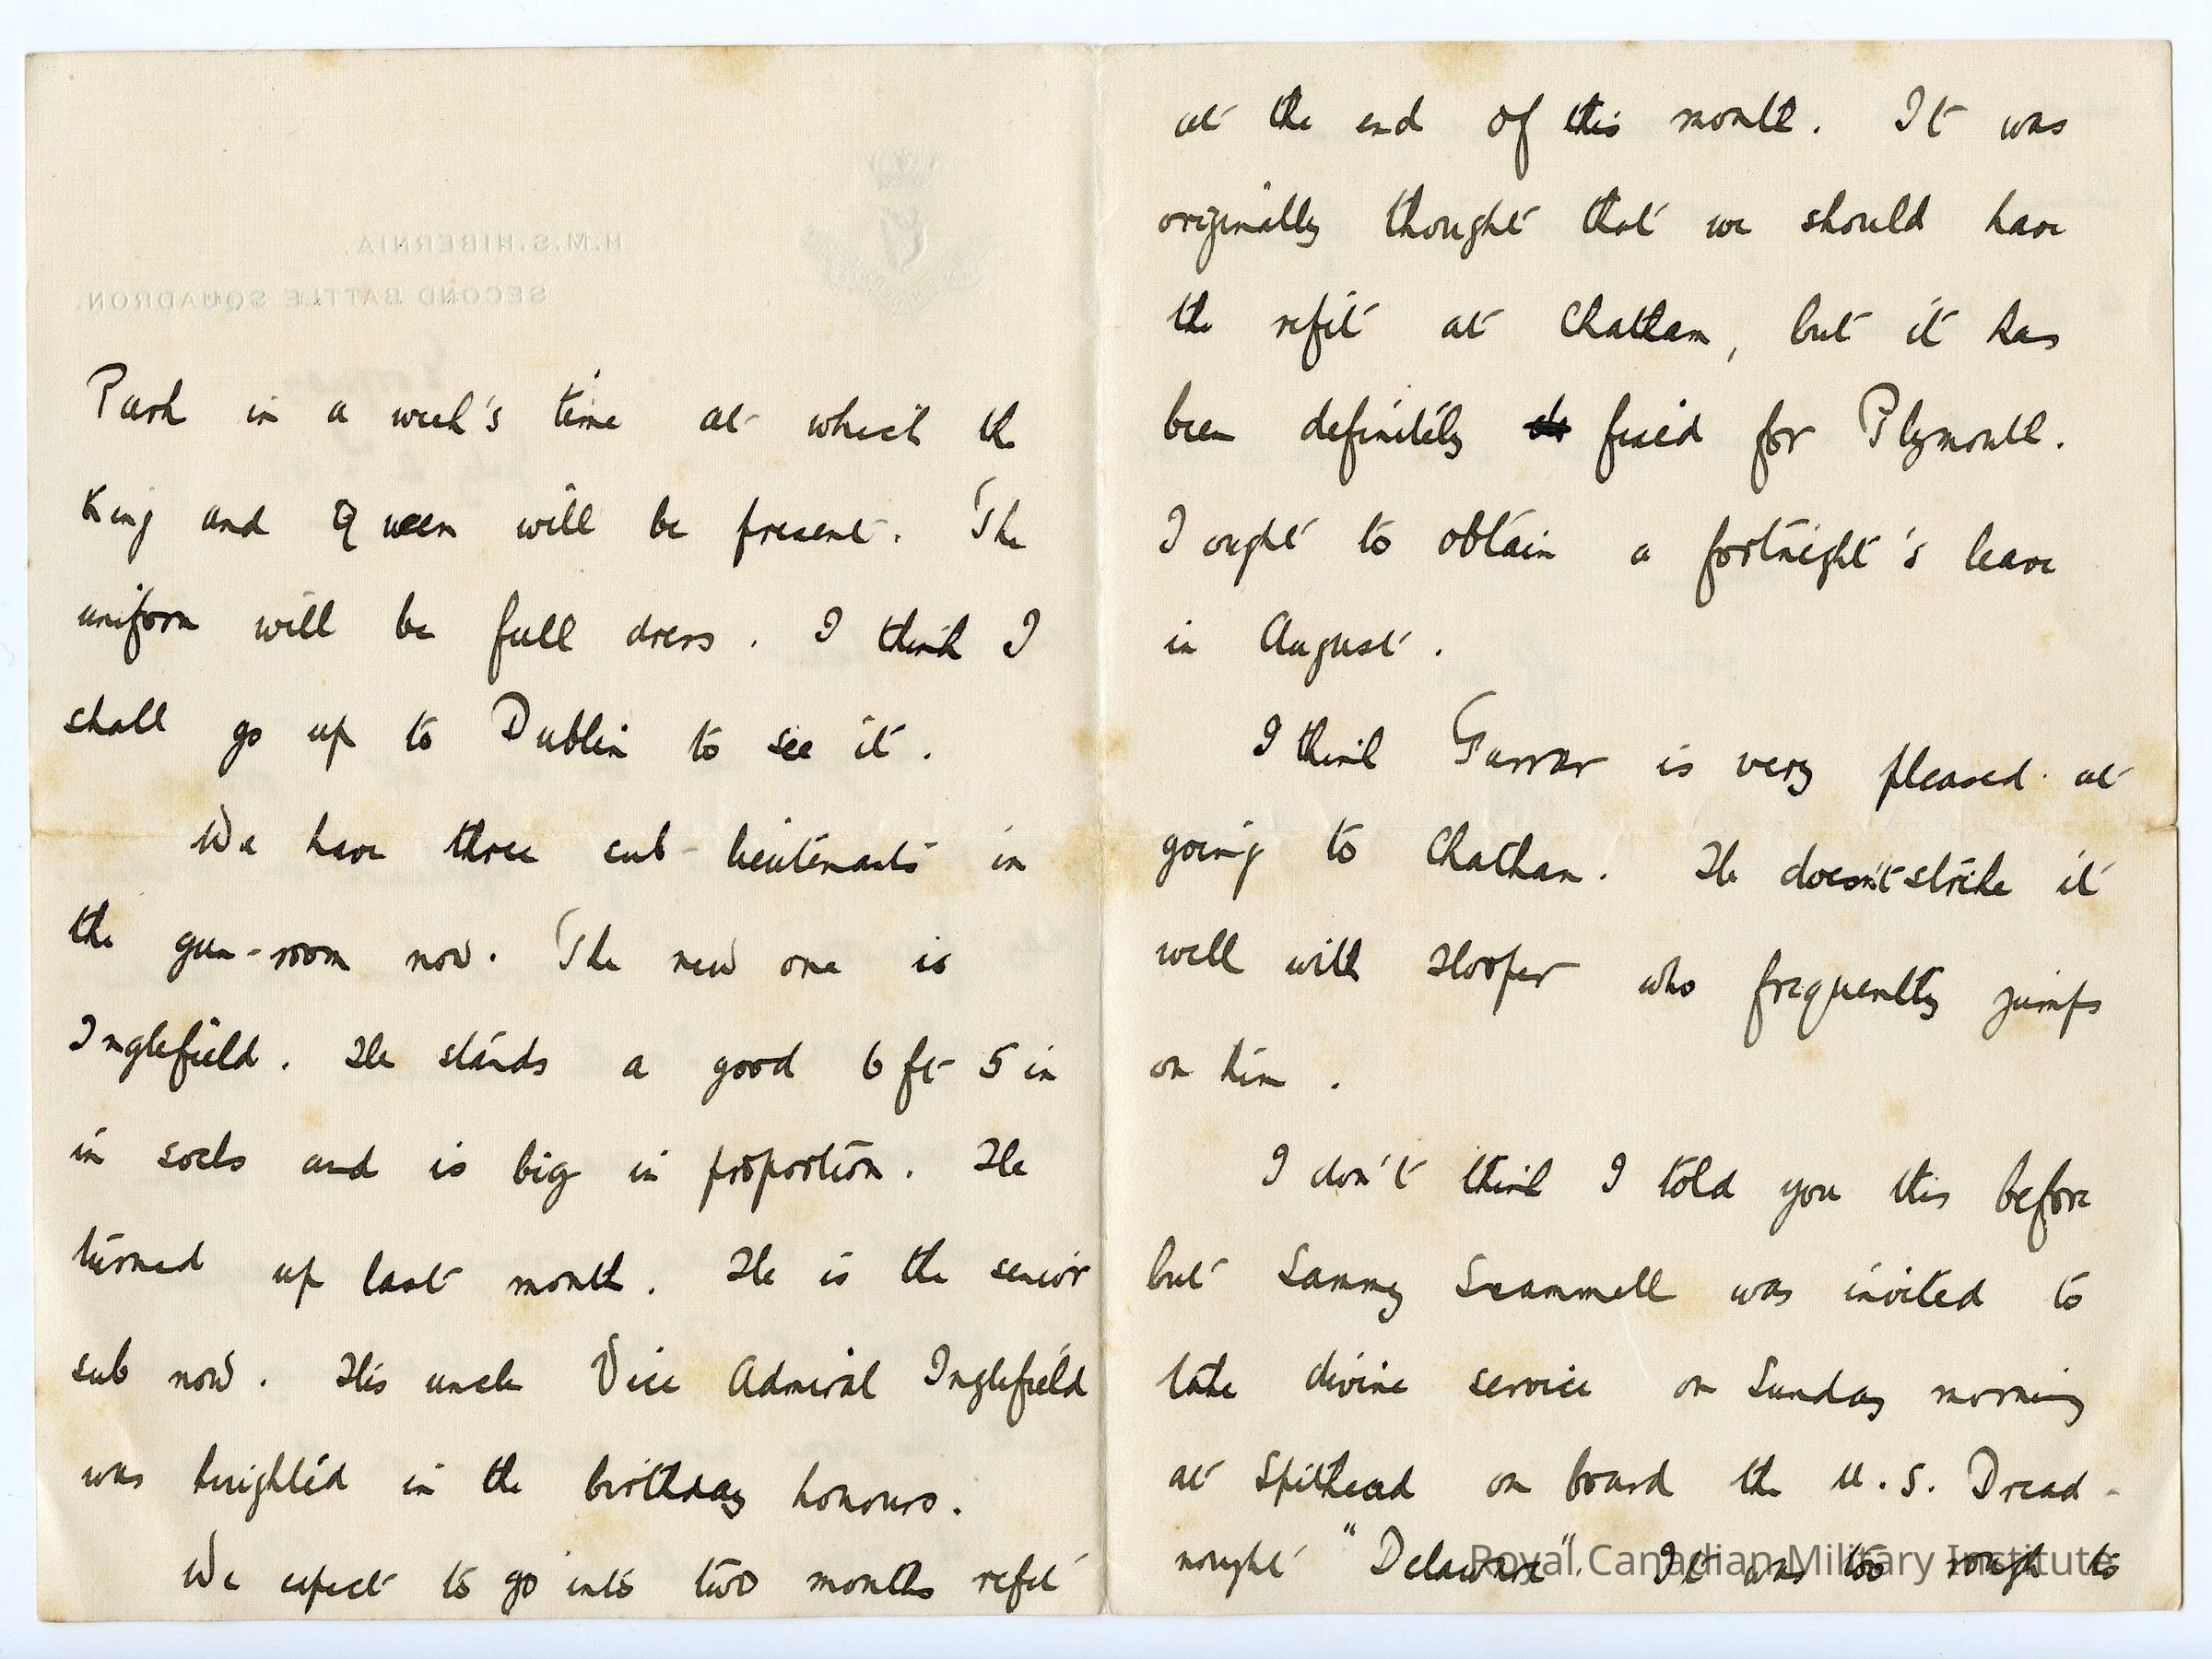 H.M.S. HIBERNIA.
SECOND BATTLE SQUADRON.
Park in a week's time at which the
King and Queen will be present. The
uniform will be full dress. I think I
shall go up to Dublin to see it.
We have three sub-lieutenants in
the gun-room now. The new one is
Inglefield. He stands a good 6 ft 5 in
in socks and is big in proportion. He
turned up last month. He is the senior
sub now. His uncle Vice Admiral Inglefield
was knighted in the birthday honours.
We expect to go into two months refit
at the end of this month. It was
originally thought that we should have
the refit at Chatham, but it has
been definitely fixed for Plymouth.
I ought to obtain a fortnight's leave
in August.
I think is very pleased at
going to Chatham. He doesn't strike it
well with Hooper who frequently jumps
on him.
I don't think I told you this before
but Sammy Scammell was invited to
take divine service on Sunday morning
at Spithead on board the U.S. Dread-
nought "Delaware". It was too rough to
Royal Canadian Military Institute